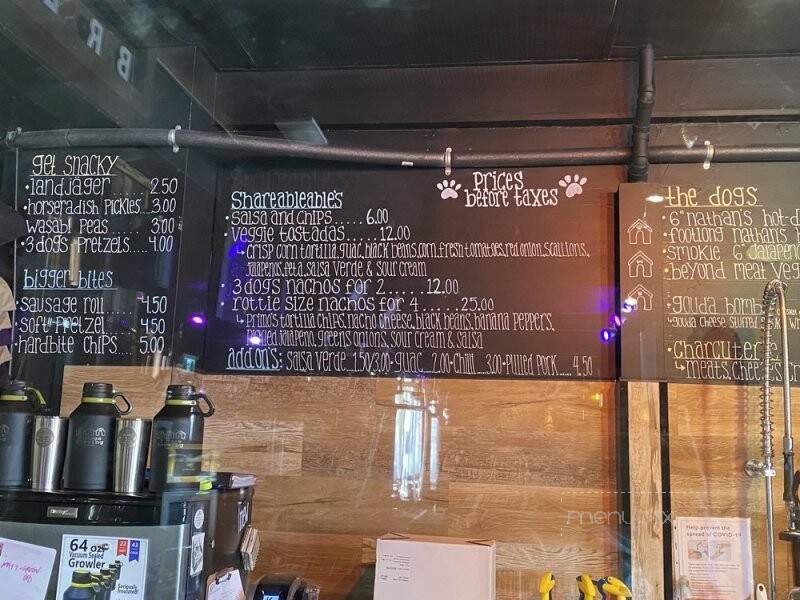 get snacky
•landjager......2.50
•horseradish pickles...3.00
wasabi peas...3.00
•3 dogs pretzels....4.00
bigger bites
•sausage roll.....4.50
•soft pretzel.....4.50
•hardbite chips....5.00
Shareableable's
•salsa and chips.....6.00
•veggie tostadas......12.00
crisp corn tortilla, guac, black beans, corn, fresh tomatoes, red onion, scallions,
jalapenos, feta, salsa verde & sour cream
•3 dogs nachos for 2......12.00
•rottie size nachos for 4.....25.00
primo's tortilla chips, nacho cheese, black beans, banana peppers,
pickled jalapeno, greens onions, sour cream & salsa
add on's: salsa verde..1.50/3.00•guac...2.00•chili....3.00•pulled pork....4.50
Prices
before taxes
the dogs
•6" nathan's hot-d
•footlong nathan's h
•smokie 6"
•beyond meat veg
gouda bomb
gouda cheese stuffed
•charcuterie
meats, cheeses
64 oz
Vacuum Sealed
Growler
Seriously
Insulated!
Help prevent the
spread of COVID-19